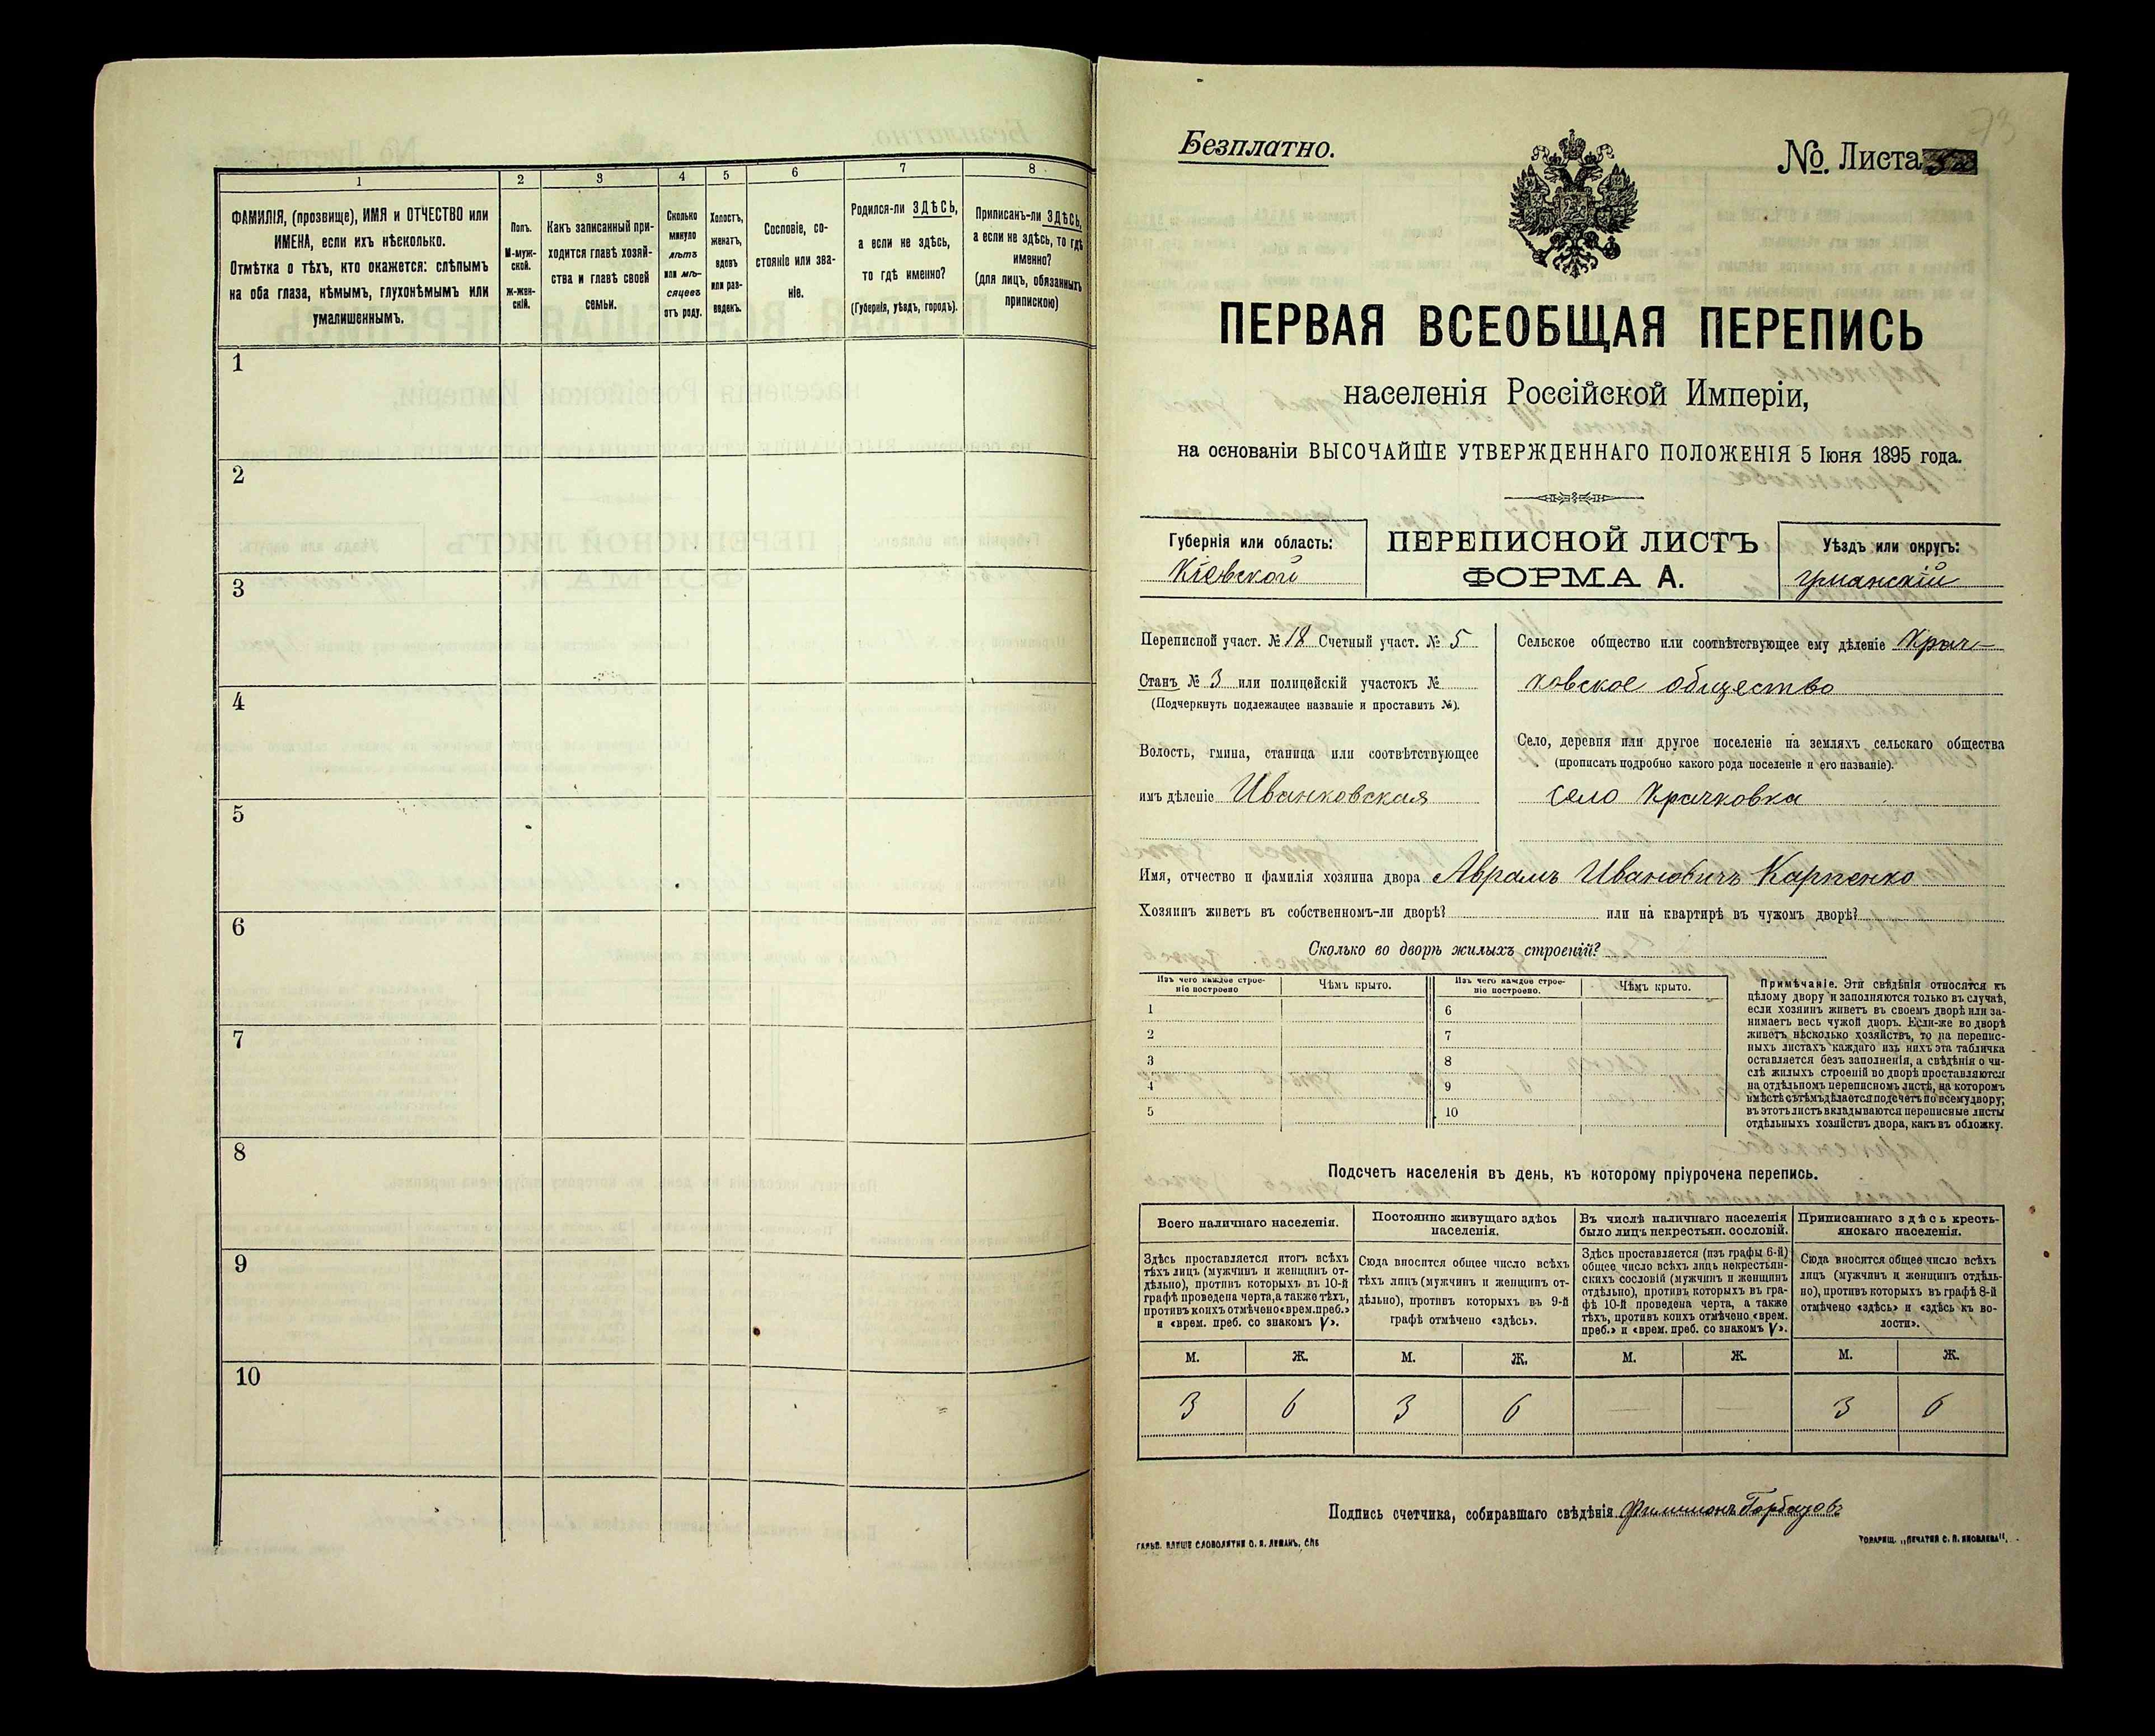 1
2
3
4
5
6
7
8
ФАМИЛІЯ, (прозвище), ИМЯ и ОТЧЕСТВО или
ИМЕНА, если ихъ нѣсколько.
Отмѣтка о тѣхъ, кто окажется: слѣпымъ
на оба глаза, нѣмымъ, глухонѣмымъ или
умалишеннымъ.
Полъ.
М-муж-
ской.
Ж-жен-
скій.
Какъ записанный при-
ходится главѣ хозяй-
ства и главѣ своей
семьи.
Сколько
минуло
лѣтъ
или мѣ-
сяцевъ
отъ роду.
Холостъ,
женатъ,
вдовъ
или раз-
веденъ.
Сословіе, со-
стояніе или зва-
ніе.
Родился-ли ЗДѢСЬ,
а если не здѣсь,
то гдѣ именно?
(Губернія, уѣздъ, городъ).
Приписанъ-ли ЗДѢСЬ,
а если не здѣсь, то гдѣ
именно?
(для лицъ, обязанныхъ
припискою)
1
2
3
4
5
6
7
8
9
10
Безплатно.
№. Листа
ПЕРВАЯ ВСЕОБЩАЯ ПЕРЕПИСЬ
населенія Россійской Имперіи,
на основаніи ВЫСОЧАЙШЕ УТВЕРЖДЕННАГО ПОЛОЖЕНІЯ 5 Іюня 1895 года.
Губернія или область:
Кіевской
ПЕРЕПИСНОЙ ЛИСТЪ
ФОРМА А.
Уѣздъ или округъ:
Уманскій
Переписной участ. № 18 Счетный участ. № 5
Станъ № 3 или полицейскій участокъ №
(Подчеркнуть подлежащее названіе и проставить №).
Волость, гмина, станица или соотвѣтствующее
имъ дѣленіе Иванковская
Сельское общество или соотвѣтствующее ему дѣленіе Крач-
ковское общество
Село, деревня или другое поселеніе на земляхъ сельскаго общества
(прописать подробно какого рода поселеніе и его названіе).
село Крачковка
Имя, отчество и фамилія хозяина двора Аврамъ Ивановичъ Карпенко
Хозяинъ живетъ въ собственномъ-ли дворѣ? или на квартирѣ въ чужомъ дворѣ?
Сколько во дворѣ жилыхъ строеній?
Изъ чего каждое строе-
ніе построено
Чѣмъ крыто.
Изъ чего каждое строе-
ніе построено.
Чѣмъ крыто.
1
2
3
4
5
6
7
8
9
10
Примѣчаніе. Эти свѣдѣнія относятся къ
цѣлому двору и заполняются только въ случаѣ,
если хозяинъ живетъ въ своемъ дворѣ или за-
нимаетъ весь чужой дворъ. Если-же во дворѣ
живетъ нѣсколько хозяйствъ, то на перепис-
ныхъ листахъ каждаго изъ нихъ эта табличка
оставляется безъ заполненія, а свѣдѣнія о чи-
слѣ жилыхъ строеній во дворѣ проставляются
на отдѣльномъ переписномъ листѣ, на которомъ
вмѣстѣ съ тѣмъ дѣлается подсчетъ по всему двору;
въ этотъ листъ вкладываются переписные листы
отдѣльныхъ хозяйствъ двора, какъ въ обложку.
Подсчетъ населенія въ день, къ которому пріурочена перепись.
Всего наличнаго населенія.
Постоянно живущаго здѣсь
населенія.
Въ числѣ наличнаго населенія
было лицъ некрестьян. сословій.
Приписаннаго здѣсь кресть-
янскаго населенія.
Здѣсь проставляется итогъ всѣхъ
тѣхъ лицъ (мужчинъ и женщинъ от-
дѣльно), противъ которыхъ въ 10-й
графѣ проведена черта, а также тѣхъ,
противъ коихъ отмѣчено «врем. преб.»
и «врем. преб. со знакомъ V».
Сюда вносится общее число всѣхъ
тѣхъ лицъ (мужчинъ и женщинъ от-
дѣльно), противъ которыхъ въ 9-й
графѣ отмѣчено «здѣсь».
Здѣсь проставляется (изъ графы 6-й)
общее число всѣхъ лицъ некрестьян-
скихъ сословій (мужчинъ и женщинъ
отдѣльно), противъ которыхъ въ гра-
фѣ 10-й проведена черта, а также
тѣхъ, противъ коихъ отмѣчено «врем.
преб.» и «врем. преб. со знакомъ V».
Сюда вносится общее число всѣхъ
лицъ (мужчинъ и женщинъ отдѣль-
но), противъ которыхъ въ графѣ 8-й
отмѣчено «здѣсь» и «здѣсь къ во-
лости».
М. Ж. М. Ж. М. Ж. М. Ж.
3 6 3 6 — — 3 6
Подпись счетчика, собиравшаго свѣдѣнія Филимонъ
ГАЛЬВ. КЛИШЕ СЛОВОЛИТНИ О. И. ЛЕМАНЪ, СПБ
ТОВАРИЩ. „ПЕЧАТНЯ С. П. ЯКОВЛЕВА".